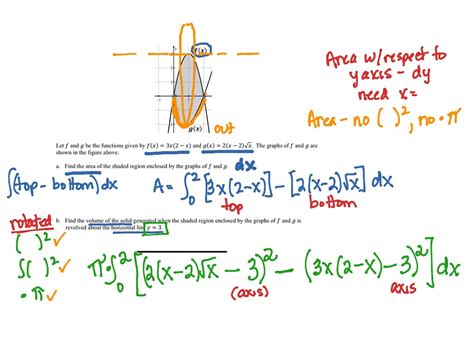 f(x)
g(x)
out
Area w/respect to
y axis - dy
need x=
Area - no ( )², no · π
Let f and g be the functions given by f(x) = 3x(2 − x) and g(x) = 2(x − 2)√x. The graphs of f and g are
shown in the figure above.
a. Find the area of the shaded region enclosed by the graphs of f and g. dx
∫(top - bottom)dx A = ∫₀² [3x(2-x)] - [2(x-2)√x] dx
top bottom
rotated b. Find the volume of the solid generated when the shaded region enclosed by the graphs of f and g is
revolved about the horizontal line y = 3.
( )² ✓
∫( )² ✓
· π ✓
π · ∫₀² [(2(x-2)√x - 3)² - (3x(2-x) - 3)²] dx
(axis) axis